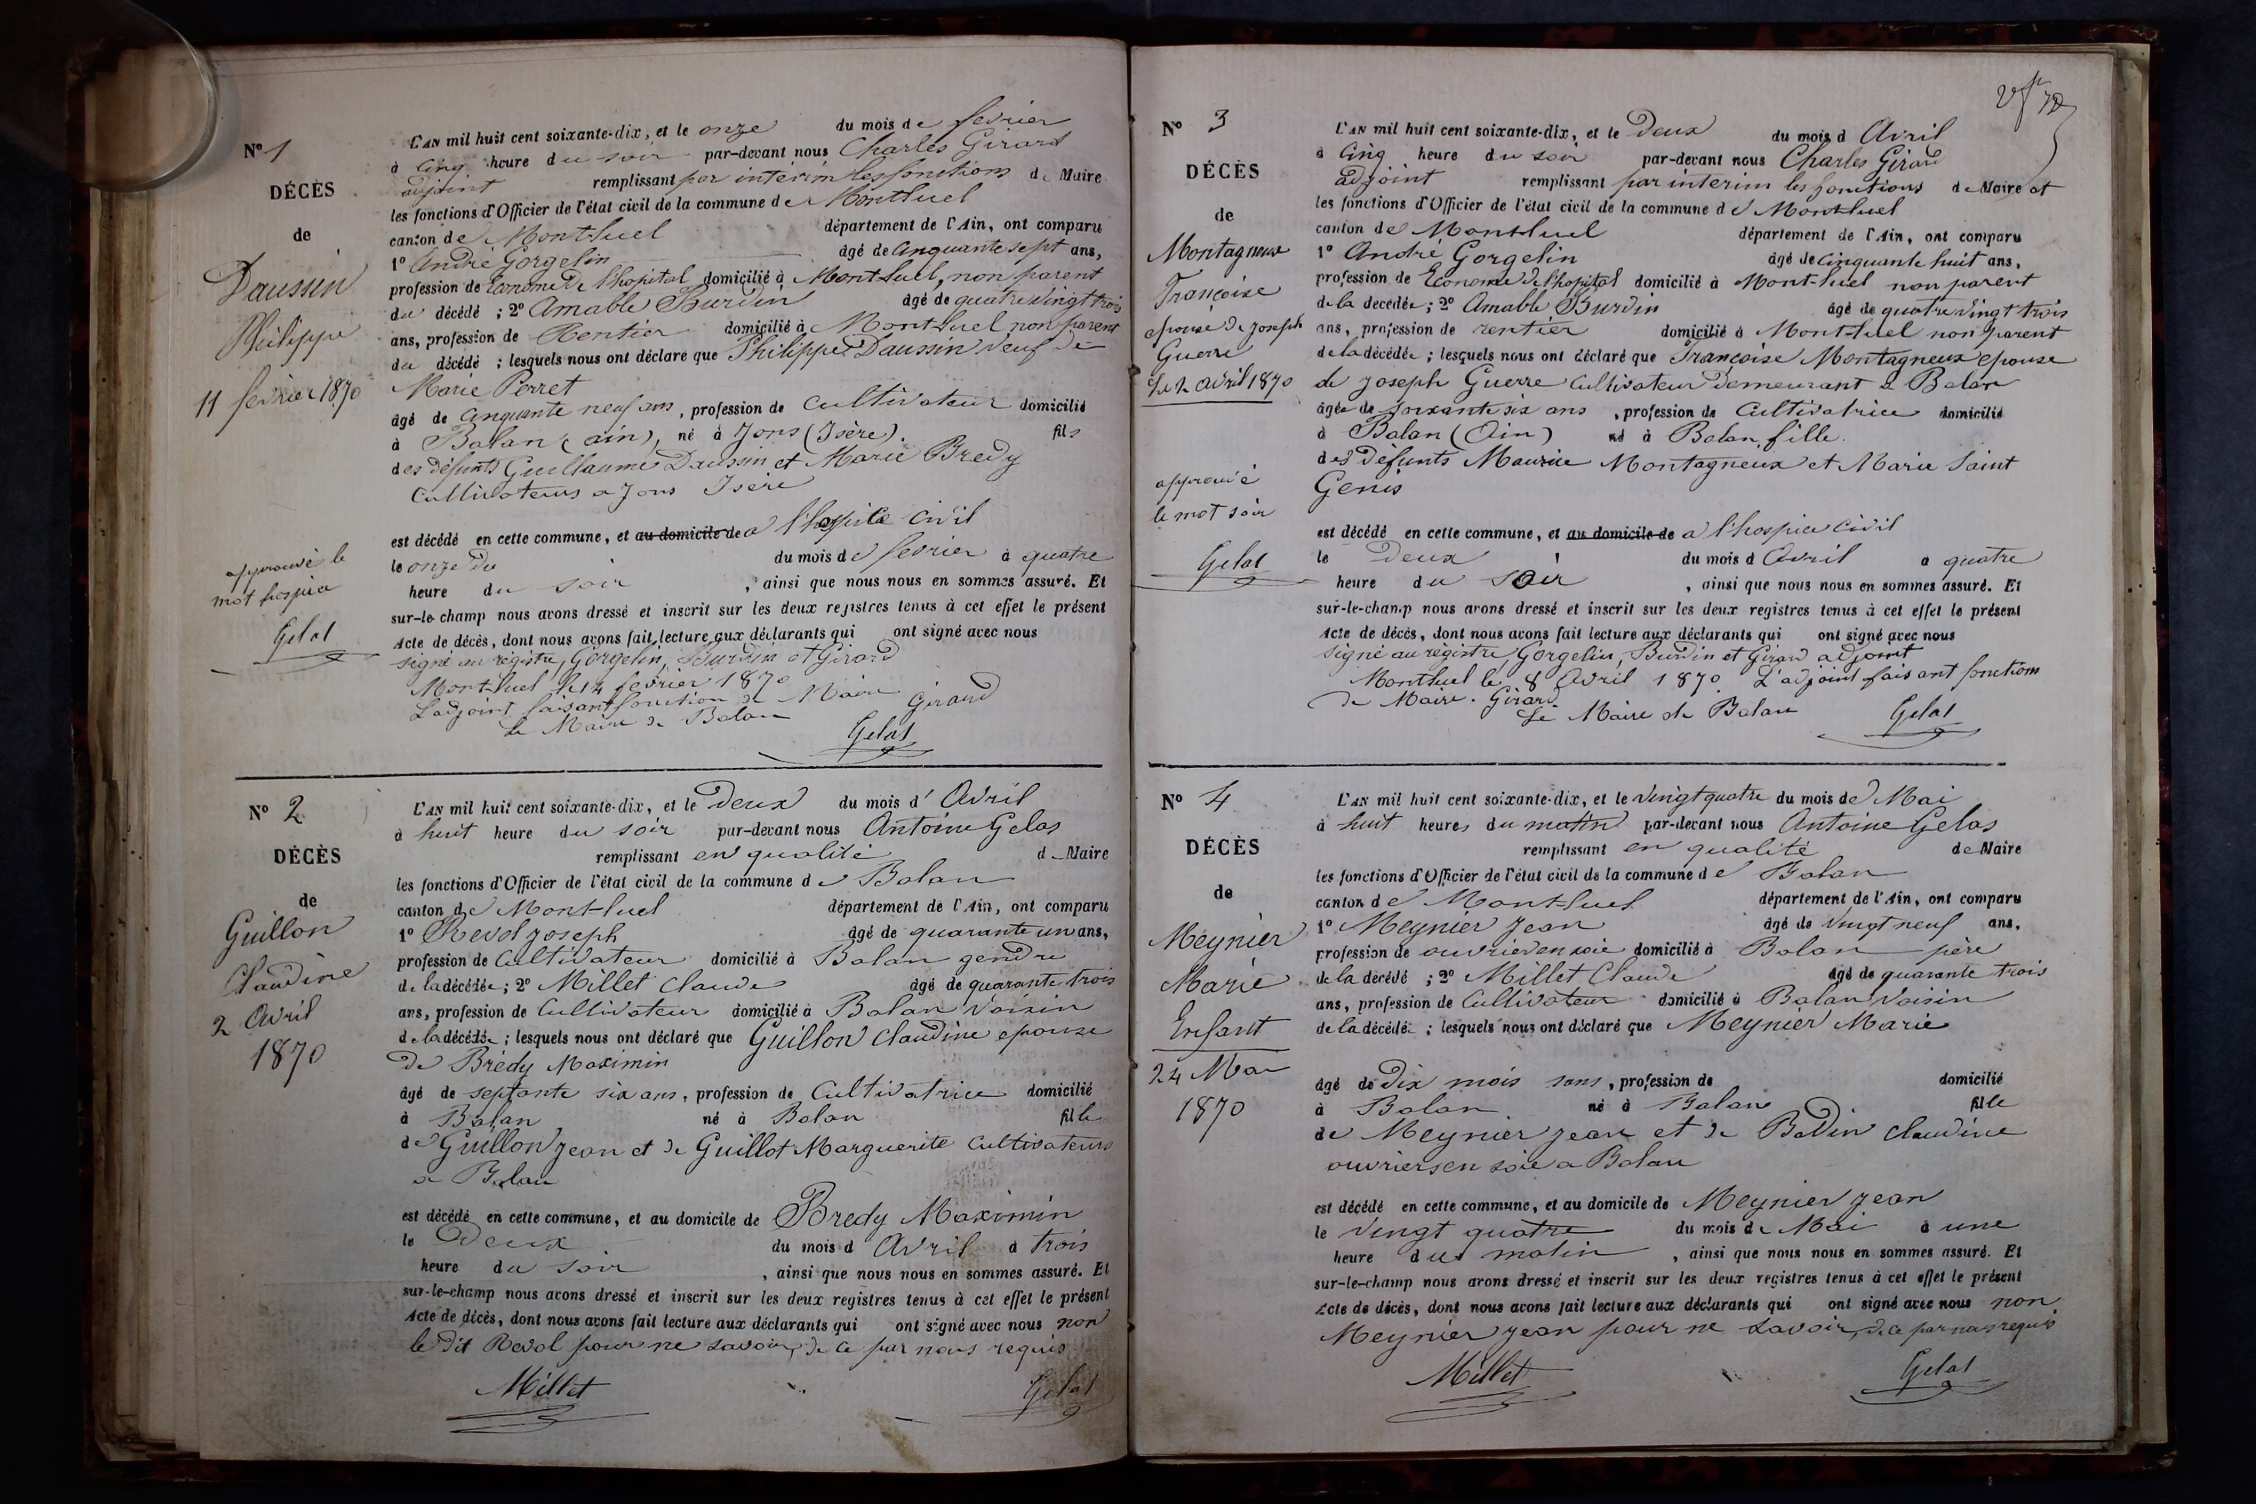 Nº 1
DÉCÈS
de
Daussin
Philippe
11 fevrier 1870
approuvé le
mot hospice
Gelas
L'AN mil huit cent soixante-dix, et le onze du mois de fevrier
à cinq heure du soir par-devant nous Charles Girard
adjoint remplissant par interim les fonctions de Maire
les fonctions d'Officier de l'état civil de la commune de Montluel
canton de Montluel département de l'Ain, ont comparu
1º André Gorgelin âgé de cinquante sept ans,
profession de Econome de l'hopital domicilié à Montluel, non parent
du décédé ; 2º Amable Burdin âgé de quatre vingt trois
ans, profession de Rentier domicilié à Montluel non parent
du décédé ; lesquels nous ont déclaré que Philippe Daussin veuf de
Marie Perret
âgé de cinquante neuf ans, profession de cultivateur domicilié
à Balan (ain), né à Jons (Isère). fils
des défunts Guillaume Daussin et Marie Bredy
cultivateurs a Jons Isere
est décédé en cette commune, et au domicile de a l'hospice civil
le onze du du mois de fevrier à quatre
heure du soir, ainsi que nous nous en sommes assuré. Et
sur-le-champ nous avons dressé et inscrit sur les deux registres tenus à cet effet le présent
Acte de décès, dont nous avons fait lecture aux déclarants qui ont signé avec nous
signé au régistre, Gorgelin, Burdin et Girard
Montluel le 14 fevrier 1870
L'adjoint faisant fonction de Maire Girard
Le Maire de Balan
Gelas
Nº 2
DÉCÈS
de
Guillon
Claudine
2 Avril
1870
L'AN mil huit cent soixante-dix, et le Deux du mois d' Avril
à huit heure du soir par-devant nous Antoine Gelas
remplissant en qualité d Maire
les fonctions d'Officier de l'état civil de la commune de Balan
canton de Montluel département de l'Ain, ont comparu
1º Revol joseph âgé de quarante un ans,
profession de Cultivateur domicilié à Balan gendre
de la décédée ; 2º Millet Claude âgé de quarante trois
ans, profession de Cultivateur domicilié à Balan Voisin
de la décédé ; lesquels nous ont déclaré que Guillon Claudine epouse
de Brédy Maximin
âgé de septante six ans, profession de Cultivatrice domicilié
à Balan né à Balan fille
de Guillon jean et de Guillot Marguerite Cultivateurs
a Balan
est décédé en cette commune, et au domicile de Bredy Maximin
le Deux du mois d Avril à trois
heure du soir, ainsi que nous nous en sommes assuré. Et
sur-le-champ nous avons dressé et inscrit sur les deux registres tenus à cet effet le présent
Acte de décès, dont nous avons fait lecture aux déclarants qui ont signé avec nous non
le dit Revol pour ne savoir, de ce par nous requis
Millet Gelas
Nº 3
DÉCÈS
de
Montagneux
Françoise
epouse de Joseph
Guerre
Le 2 avril 1870
approuvé
le mot soir
Gelas
L'AN mil huit cent soixante-dix, et le Deux du mois d Avril
à Cinq heure du soir par-devant nous Charles Girard
adjoint remplissant par interim les fonctions de Maire et
les fonctions d'Officier de l'état civil de la commune de Montluel
canton de Montluel département de l'Ain, ont comparu
1º André Gorgelin âgé de cinquante huit ans,
profession de Econome de l'hopital domicilié à Montluel non parent
de la décédée ; 2º Amable Burdin âgé de quatre vingt trois
ans, profession de rentier domicilié à Montluel non parent
de la décédée ; lesquels nous ont déclaré que Françoise Montagneux epouse
de joseph Guerre cultivateur Demeurant a Balan
âgée de soixante six ans, profession de Cultivatrice domicilié
à Balan (Ain) né à Balan, fille.
des Défunts Maurice Montagneux et Marie Saint
Genis
est décédé en cette commune, et au domicile de a l'hospice civil
le Deux du mois d Avril a quatre
heure du soir, ainsi que nous nous en sommes assuré. Et
sur-le-champ nous avons dressé et inscrit sur les deux registres tenus à cet effet le présent
Acte de décès, dont nous avons fait lecture aux déclarants qui ont signé avec nous
Signé au registre Gorgelin, Burdin et Girard adjoint
Montluel le 8 Avril 1870. L'adjoint faisant fonction
de Maire. Girard.
Le Maire de Balan Gelas
Nº 4
DÉCÈS
de
Meynier
Marie
Enfant
24 Mai
1870
L'AN mil huit cent soixante-dix, et le vingt quatre du mois de Mai
à huit heures du matin par-devant nous Antoine Gelas
remplissant en qualité de Maire
les fonctions d'Officier de l'état civil de la commune de Balan
canton de Montluel département de l'Ain, ont comparu
1º Meynier Jean âgé de vingt neuf ans,
profession de ouvrier en soie domicilié à Balan père
de la décédé ; 2º Millet Claude âgé de quarante trois
ans, profession de Cultivateur domicilié à Balan Voisin
de la décédée ; lesquels nous ont déclaré que Meynier Marie
âgé de Dix mois sans, profession de domicilié
à Balan né à Balan fille
de Meynier jean et de Badin Claudine
ouvriers en soie a Balan
est décédé en cette commune, et au domicile de Meynier jean
le vingt quatre du mois de Mai à une
heure du matin, ainsi que nous nous en sommes assuré. Et
sur-le-champ nous avons dressé et inscrit sur les deux registres tenus à cet effet le présent
Acte de décès, dont nous avons fait lecture aux déclarants qui ont signé avec nous non
Meynier jean pour ne savoir, de ce par nous requis
Millet Gelas